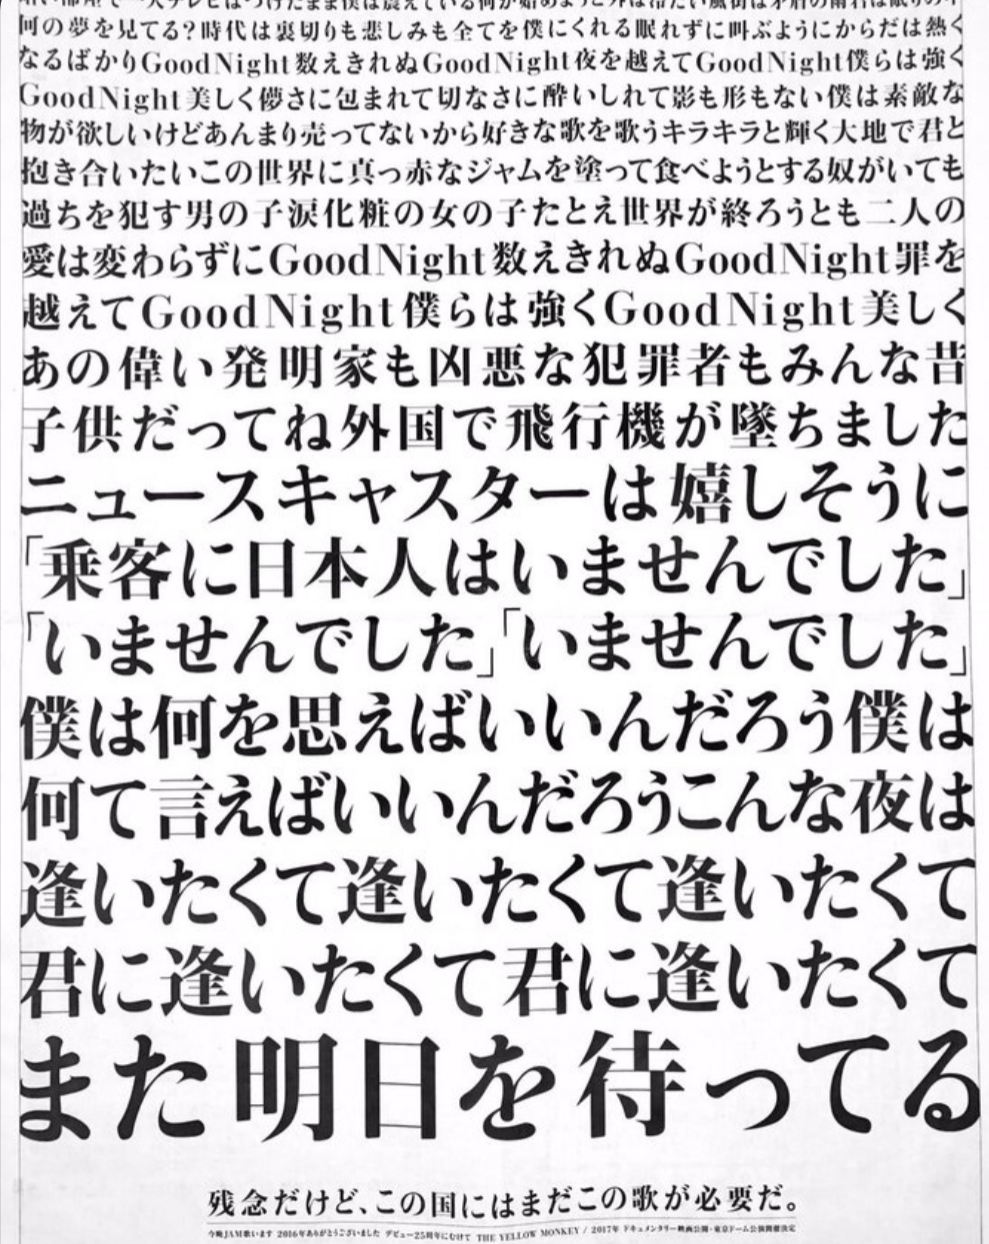 何の夢を見てる?時代は裏切りも悲しみも全てを僕にくれる眠れずに叫ぶようにからだは熱く
なるばかりGoodNight数えきれぬGoodNight夜を越えてGoodNight僕らは強く
GoodNight美しく儚さに包まれて切なさに酔いしれて影も形もない僕は素敵な
物が欲しいけどあんまり売ってないから好きな歌を歌うキラキラと輝く大地で君と
抱き合いたいこの世界に真っ赤なジャムを塗って食べようとする奴がいても
過ちを犯す男の子涙化粧の女の子たとえ世界が終ろうとも二人の
愛は変わらずにGoodNight数えきれぬGoodNight罪を
越えてGoodNight僕らは強くGoodNight美しく
あの偉い発明家も凶悪な犯罪者もみんな昔
子供だってね外国で飛行機が墜ちました
ニュースキャスターは嬉しそうに
「乗客に日本人はいませんでした」
「いませんでした」「いませんでした」
僕は何を思えばいいんだろう僕は
何て言えばいいんだろうこんな夜は
逢いたくて逢いたくて逢いたくて
君に逢いたくて君に逢いたくて
また明日を待ってる
残念だけど、この国にはまだこの歌が必要だ。
今晩JAM歌います 2016年ありがとうございました デビュー25周年にむけて THE YELLOW MONKEY / 2017年 ドキュメンタリー映画公開・東京ドーム公演開催決定